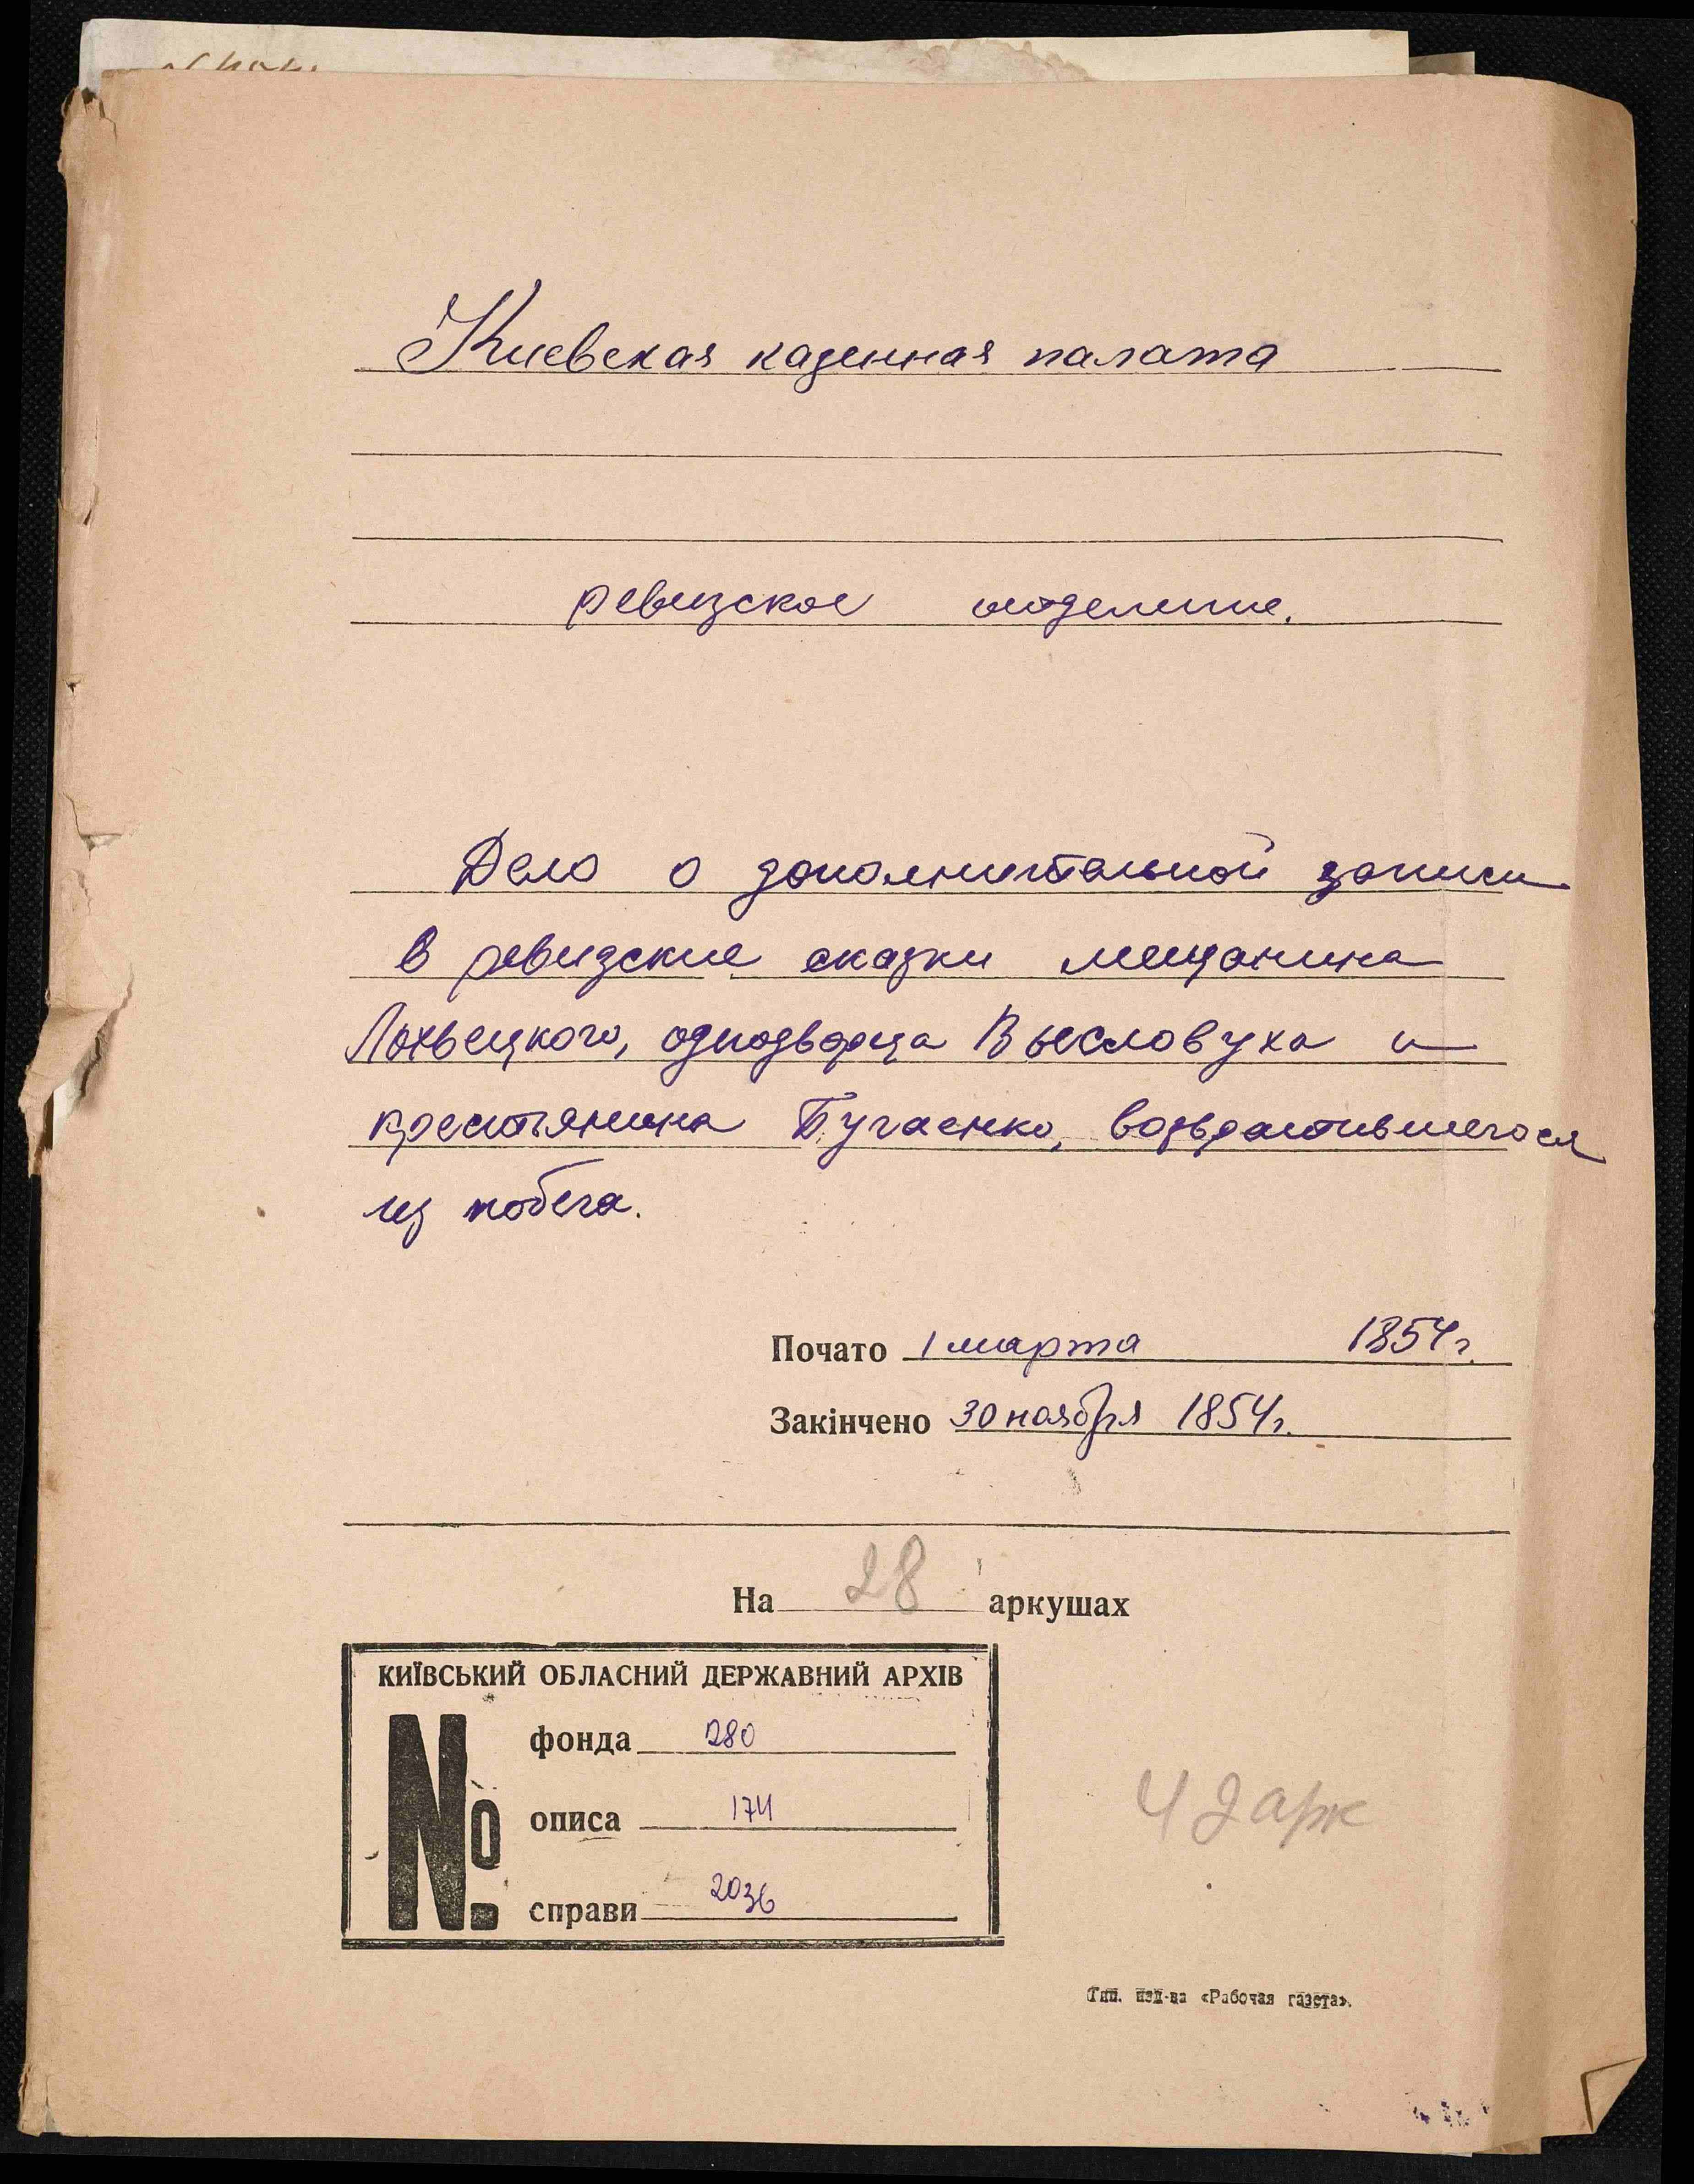 Киевская казенная палата
ревизское отделение.
Дело о дополнительной записи
в ревизские сказки мещанина
Лохвецкого, однодворца Выословуха и
крестянина Бугаенко, возвратившегося
из побега.
Почато 1 марта 1854 г.
Закінчено 30 ноября 1854 г.
На 28 аркушах
КИЇВСЬКИЙ ОБЛАСНИЙ ДЕРЖАВНИЙ АРХІВ
№
фонда 280
описа 174
справи 2036
42 арк
Тип. изд-ва «Рабочая газета».